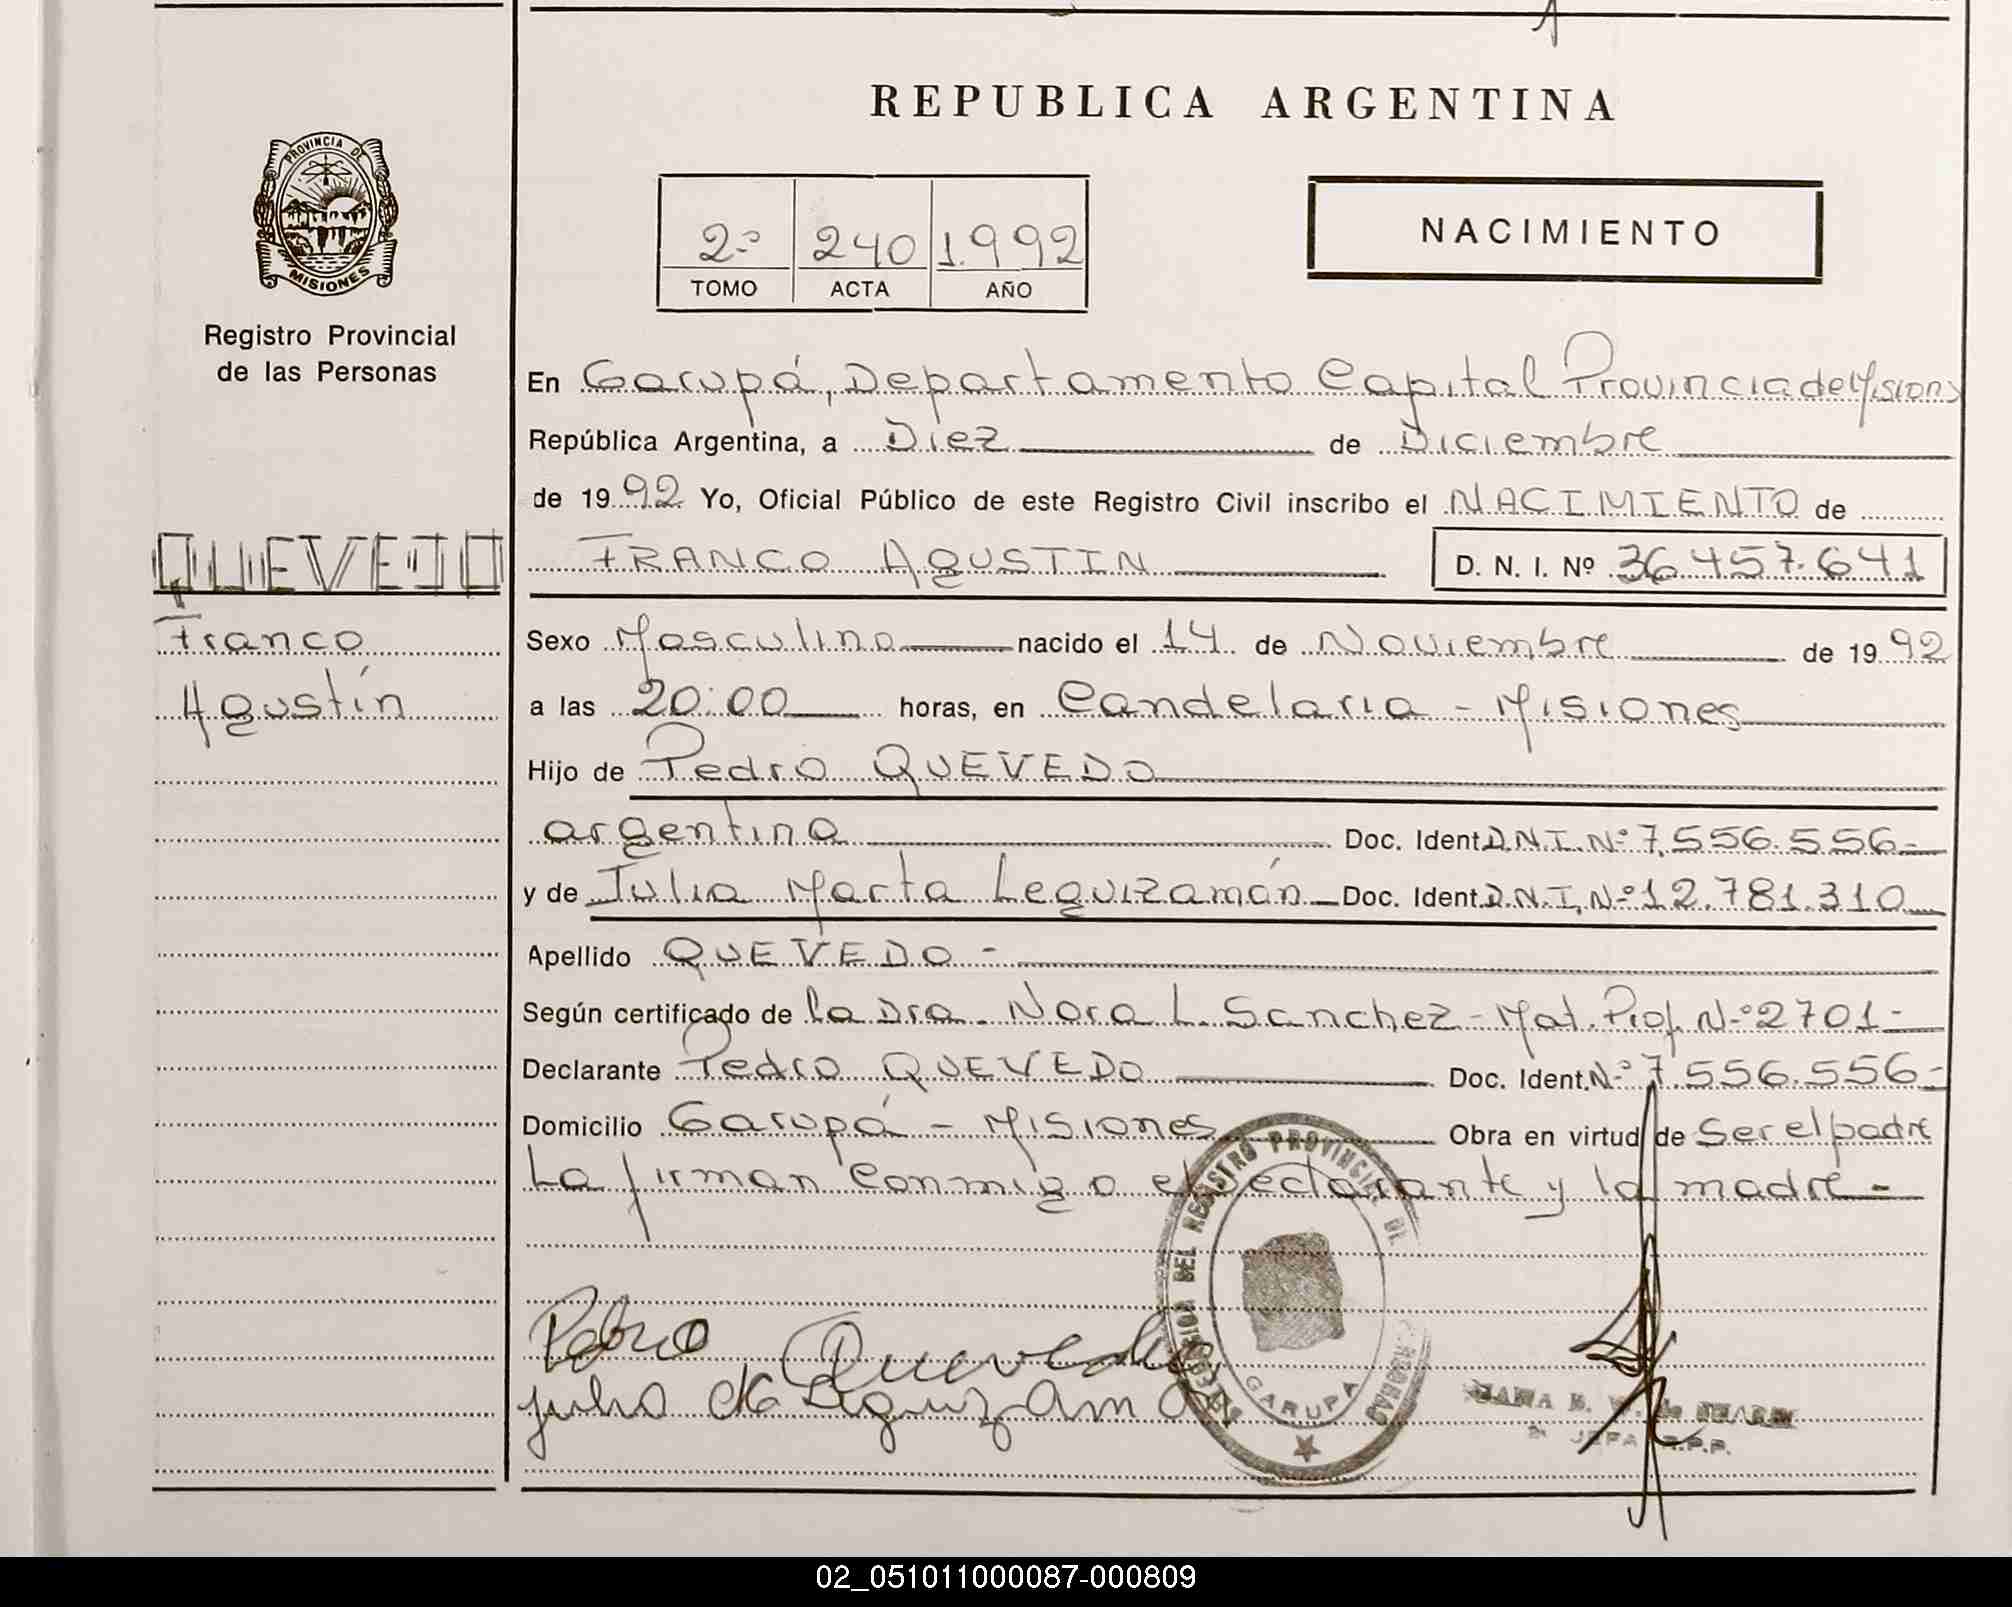 REPUBLICA ARGENTINA
PROVINCIA DE
MISIONES
Registro Provincial
de las Personas
2º 240 1.992
TOMO ACTA AÑO
NACIMIENTO
En Garupá, Departamento Capital Provincia de Misiones
República Argentina, a Diez de Diciembre
de 1992 Yo, Oficial Público de este Registro Civil inscribo el NACIMIENTO de
QUEVEDO
FRANCO AGUSTIN D. N. I. Nº 36.457.641
Franco
Agustín
Sexo Masculino nacido el 14 de Noviembre de 1992
a las 20:00 horas, en Candelaria - Misiones
Hijo de Pedro QUEVEDO
argentina Doc. Ident. D.N.I. Nº 7.556.556-
y de Julia Marta Leguizamón Doc. Ident. D.N.I. Nº 12.781.310
Apellido QUEVEDO -
Según certificado de la Dra. Nora L. Sanchez - Mat. Prof. Nº 2701-
Declarante Pedro QUEVEDO Doc. Ident. Nº 7.556.556-
Domicilio Garupá - Misiones Obra en virtud de Ser el padre
La firman conmigo el declarante y la madre -
DEL REGISTRO PROVINCIAL DE
GARUPA
Pedro Quevedo
julia de Leguizamon
JEFA R.P.P.
02_051011000087-000809